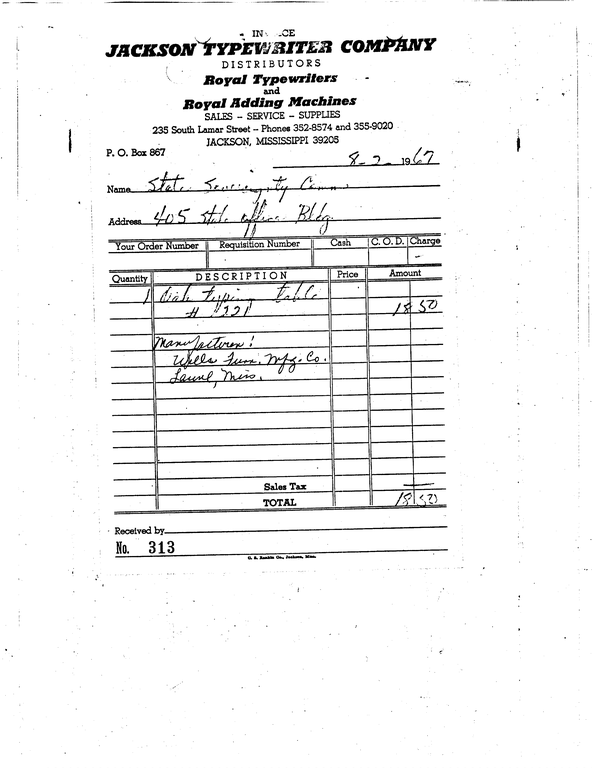 JACKSON TYPEWRITER COMPANY
DISTRIBUTORS
Royal Typewriters
and
Royal Adding Machines
SALES – SERVICE – SUPPLIES
235 South Lamar Street – Phones 352-8574 and 355-9020
JACKSON, MISSISSIPPI 39205
P. O. Box 867
8-7- 1967
Name State Sovereignty Comm
Address 405 State office Bldg.
Your Order Number Requisition Number Cash C. O. D. Charge
Quantity DESCRIPTION Price Amount
1 typing table
# 221 18 50
Manufacturer:
Wells Furn. Mfg. Co.
Laurel, Miss.
Sales Tax —
TOTAL 18 50
Received by
No. 313